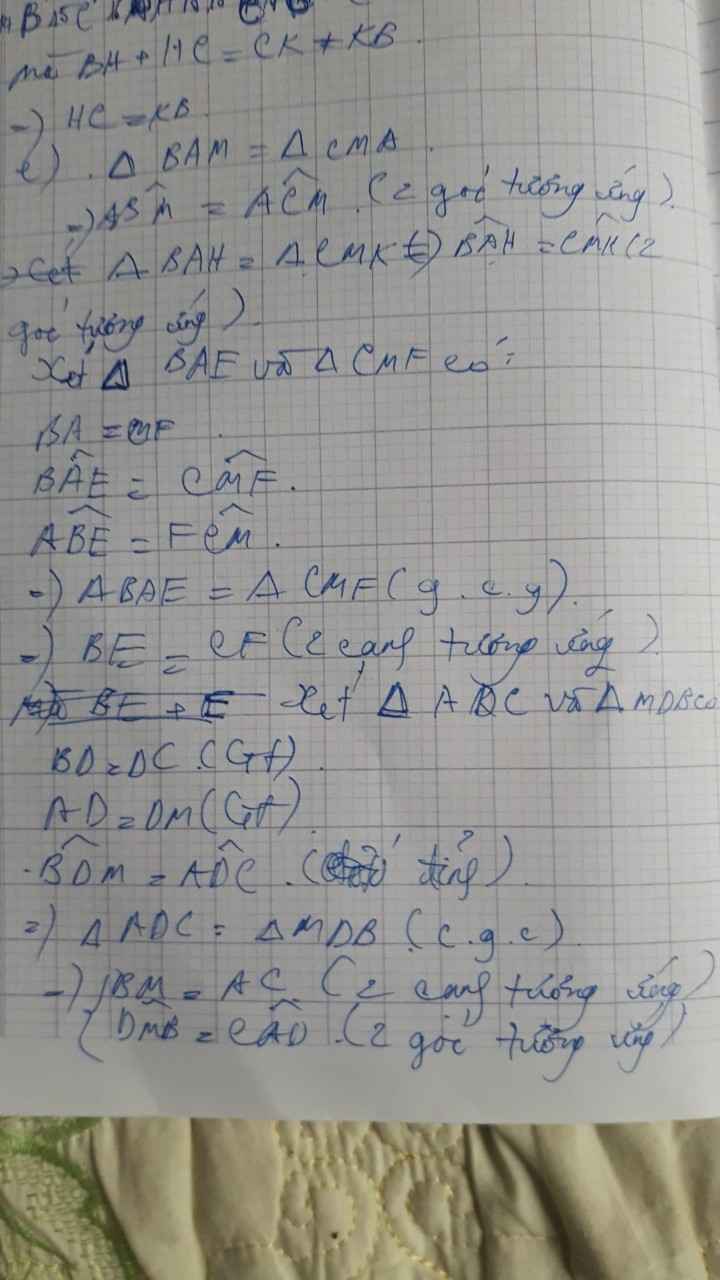 mà BH + HC = CK + KB.
=) HC = KB
e). Δ BAM = Δ CMA.
=) ABM = ACM. (2 góc tương ứng).
Δ BAH = Δ CMK (=) BAH = CMK (2
góc tương ứng)
Xét Δ BAE và Δ CMF có:
BA = CMF.
BAE = CMF.
ABE = FCM.
=) ΔBAE = Δ CMF (g.c.g).
=) BE = CF (2 cạnh tương ứng).
BE + E Xét Δ ADC và Δ MDB có
BD = DC. (Gt).
AD = DM (Gt).
BDM = ADC. (đỉnh).
=) Δ ADC = ΔMDB (c.g.c).
=) { BM = AC. (2 cạnh tương ứng)
{ DMB = CAD. (2 góc tương ứng)